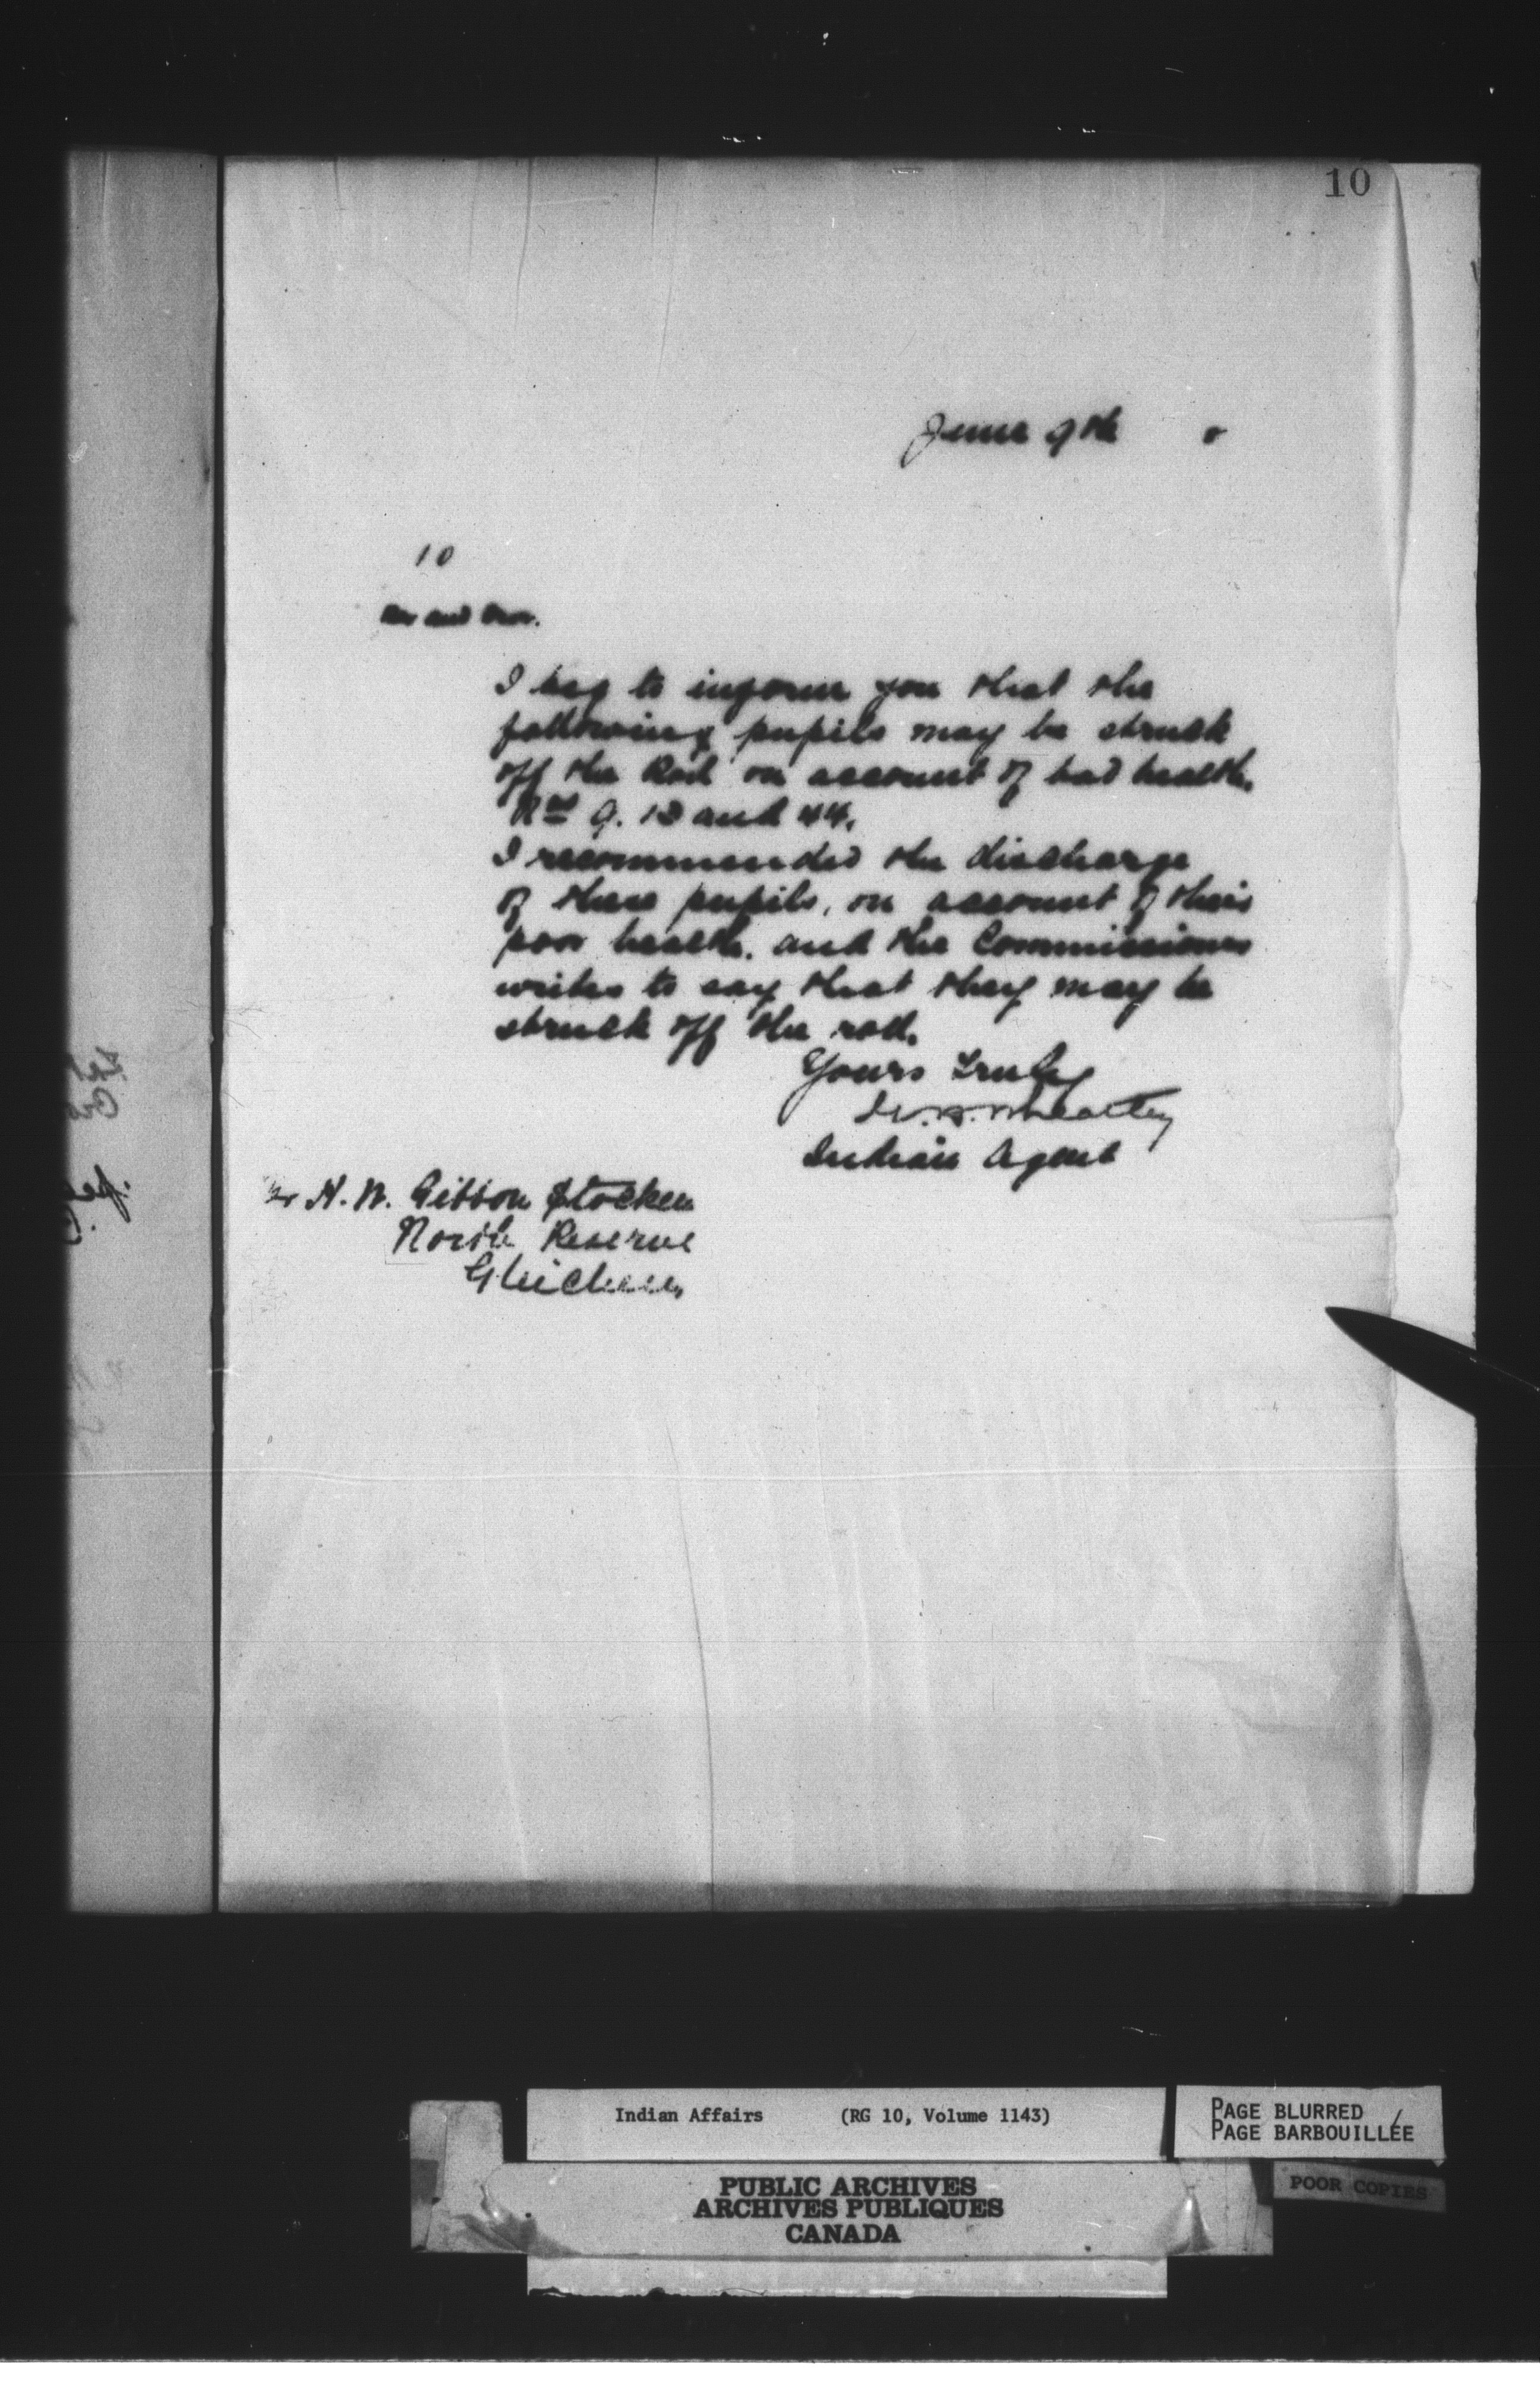 10
June 9th
10
Rev and Dear.
I beg to inform you that the
following pupils may be struck
off the Roll on account of bad health.
Nos 9. 12 and 44.
I recommended the discharge
of these pupils, on account of their
poor health. and the Commissioner
writes to say that they may be
struck off the roll.
Yours Truly
Wheatley
Indian Agent
H. W. Gibbon Stocken
North Reserve
Gleichen.
Indian Affairs (RG 10, Volume 1143)
PAGE BLURRED
PAGE BARBOUILLÉE
PUBLIC ARCHIVES
ARCHIVES PUBLIQUES
CANADA
POOR COPIES